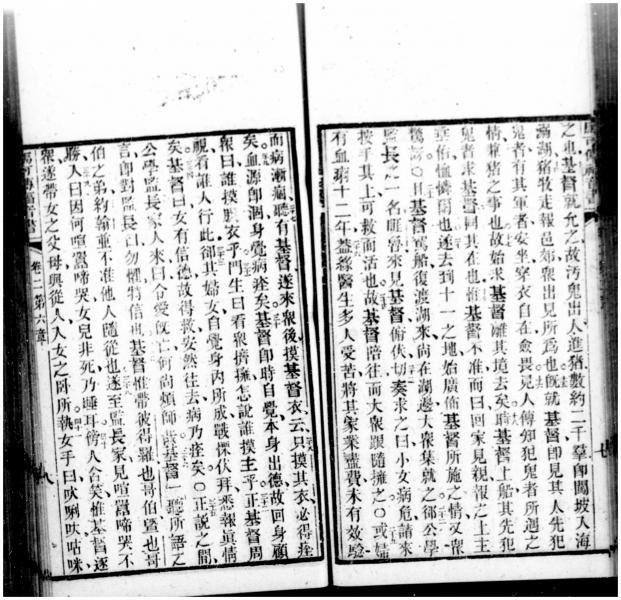 之也基督就允之故汚鬼出人進猪數約二千羣卽闖坡入海
溺湖猪牧走報邑郊衆出見所爲也旣就基督卽見其人先犯
鬼者有其軍者安坐穿衣自在僉畏見人傳知犯鬼者所遇之
情兼猪之事也故始求基督離其境去矣時基督上船其先犯
鬼者求基督同其在也惟基督不准而曰回家見親報之上主
垂佑恤憐爾也遂去到十一之地始廣佈基督所施之情又衆
驚訝〇且基督駕船復渡湖來尚在湖邊大衆集就之郤公學
監長之一名睚魯來見基督俯伏切奏求之曰小女病危請來
按手其上可救而活也故基督陪往而大衆跟隨擁之〇或婦
有血癆十二年葢緣醫生多人受苦將其家業盡費未有效驗
七
而病漸瘋聽有基督遂來衆後摸基督衣云只摸其衣必得痊
矣血源卽涸身覺病痊矣基督卽時自覺本身出德故回身顧
衆曰誰摸朕衣乎門生曰看衆擠擁怎說誰摸主乎正基督周
視看誰人行此郤其婦女自覺身內所成戰慄伏拜悉報眞情
矣基督曰女有信德故得救安然往去病乃痊矣〇正說之間
公學監長家人來曰令愛旣亡何尚煩師哉基督一聽所語之
言卽對監長曰勿懼特信也基督惟帶彼得羅也哥伯曁也哥
伯之弟約翰並不准他人隨從也遂至監長家見喧嚣啼哭不
勝人曰因何喧嚣啼哭女兒非死乃睡耳傍人含笑惟基督逐
衆遂帶女之父母與從人入女之臥所執女手曰吠唎吠咕咪
卷二第六章
八